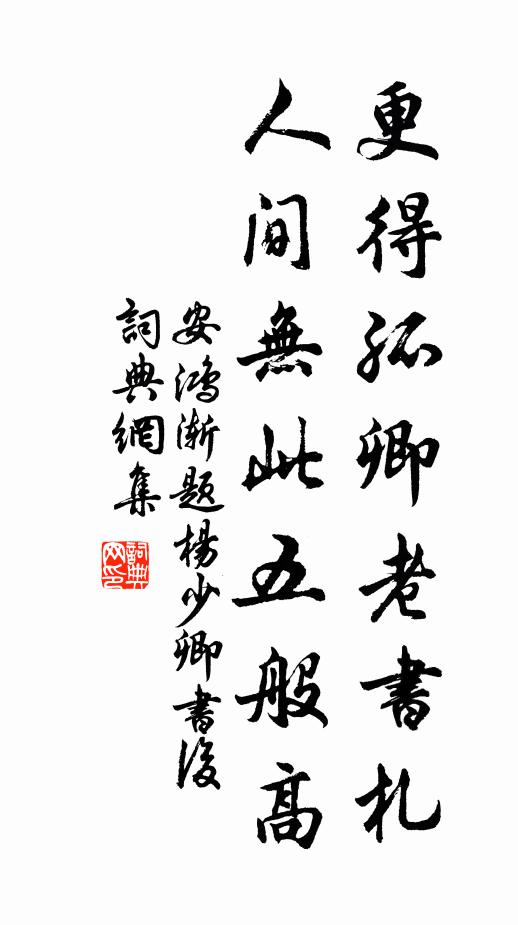 更得孤卿老書札
人間無此五般高
安鴻漸題楊少卿書後
詞典網集
詞典網印